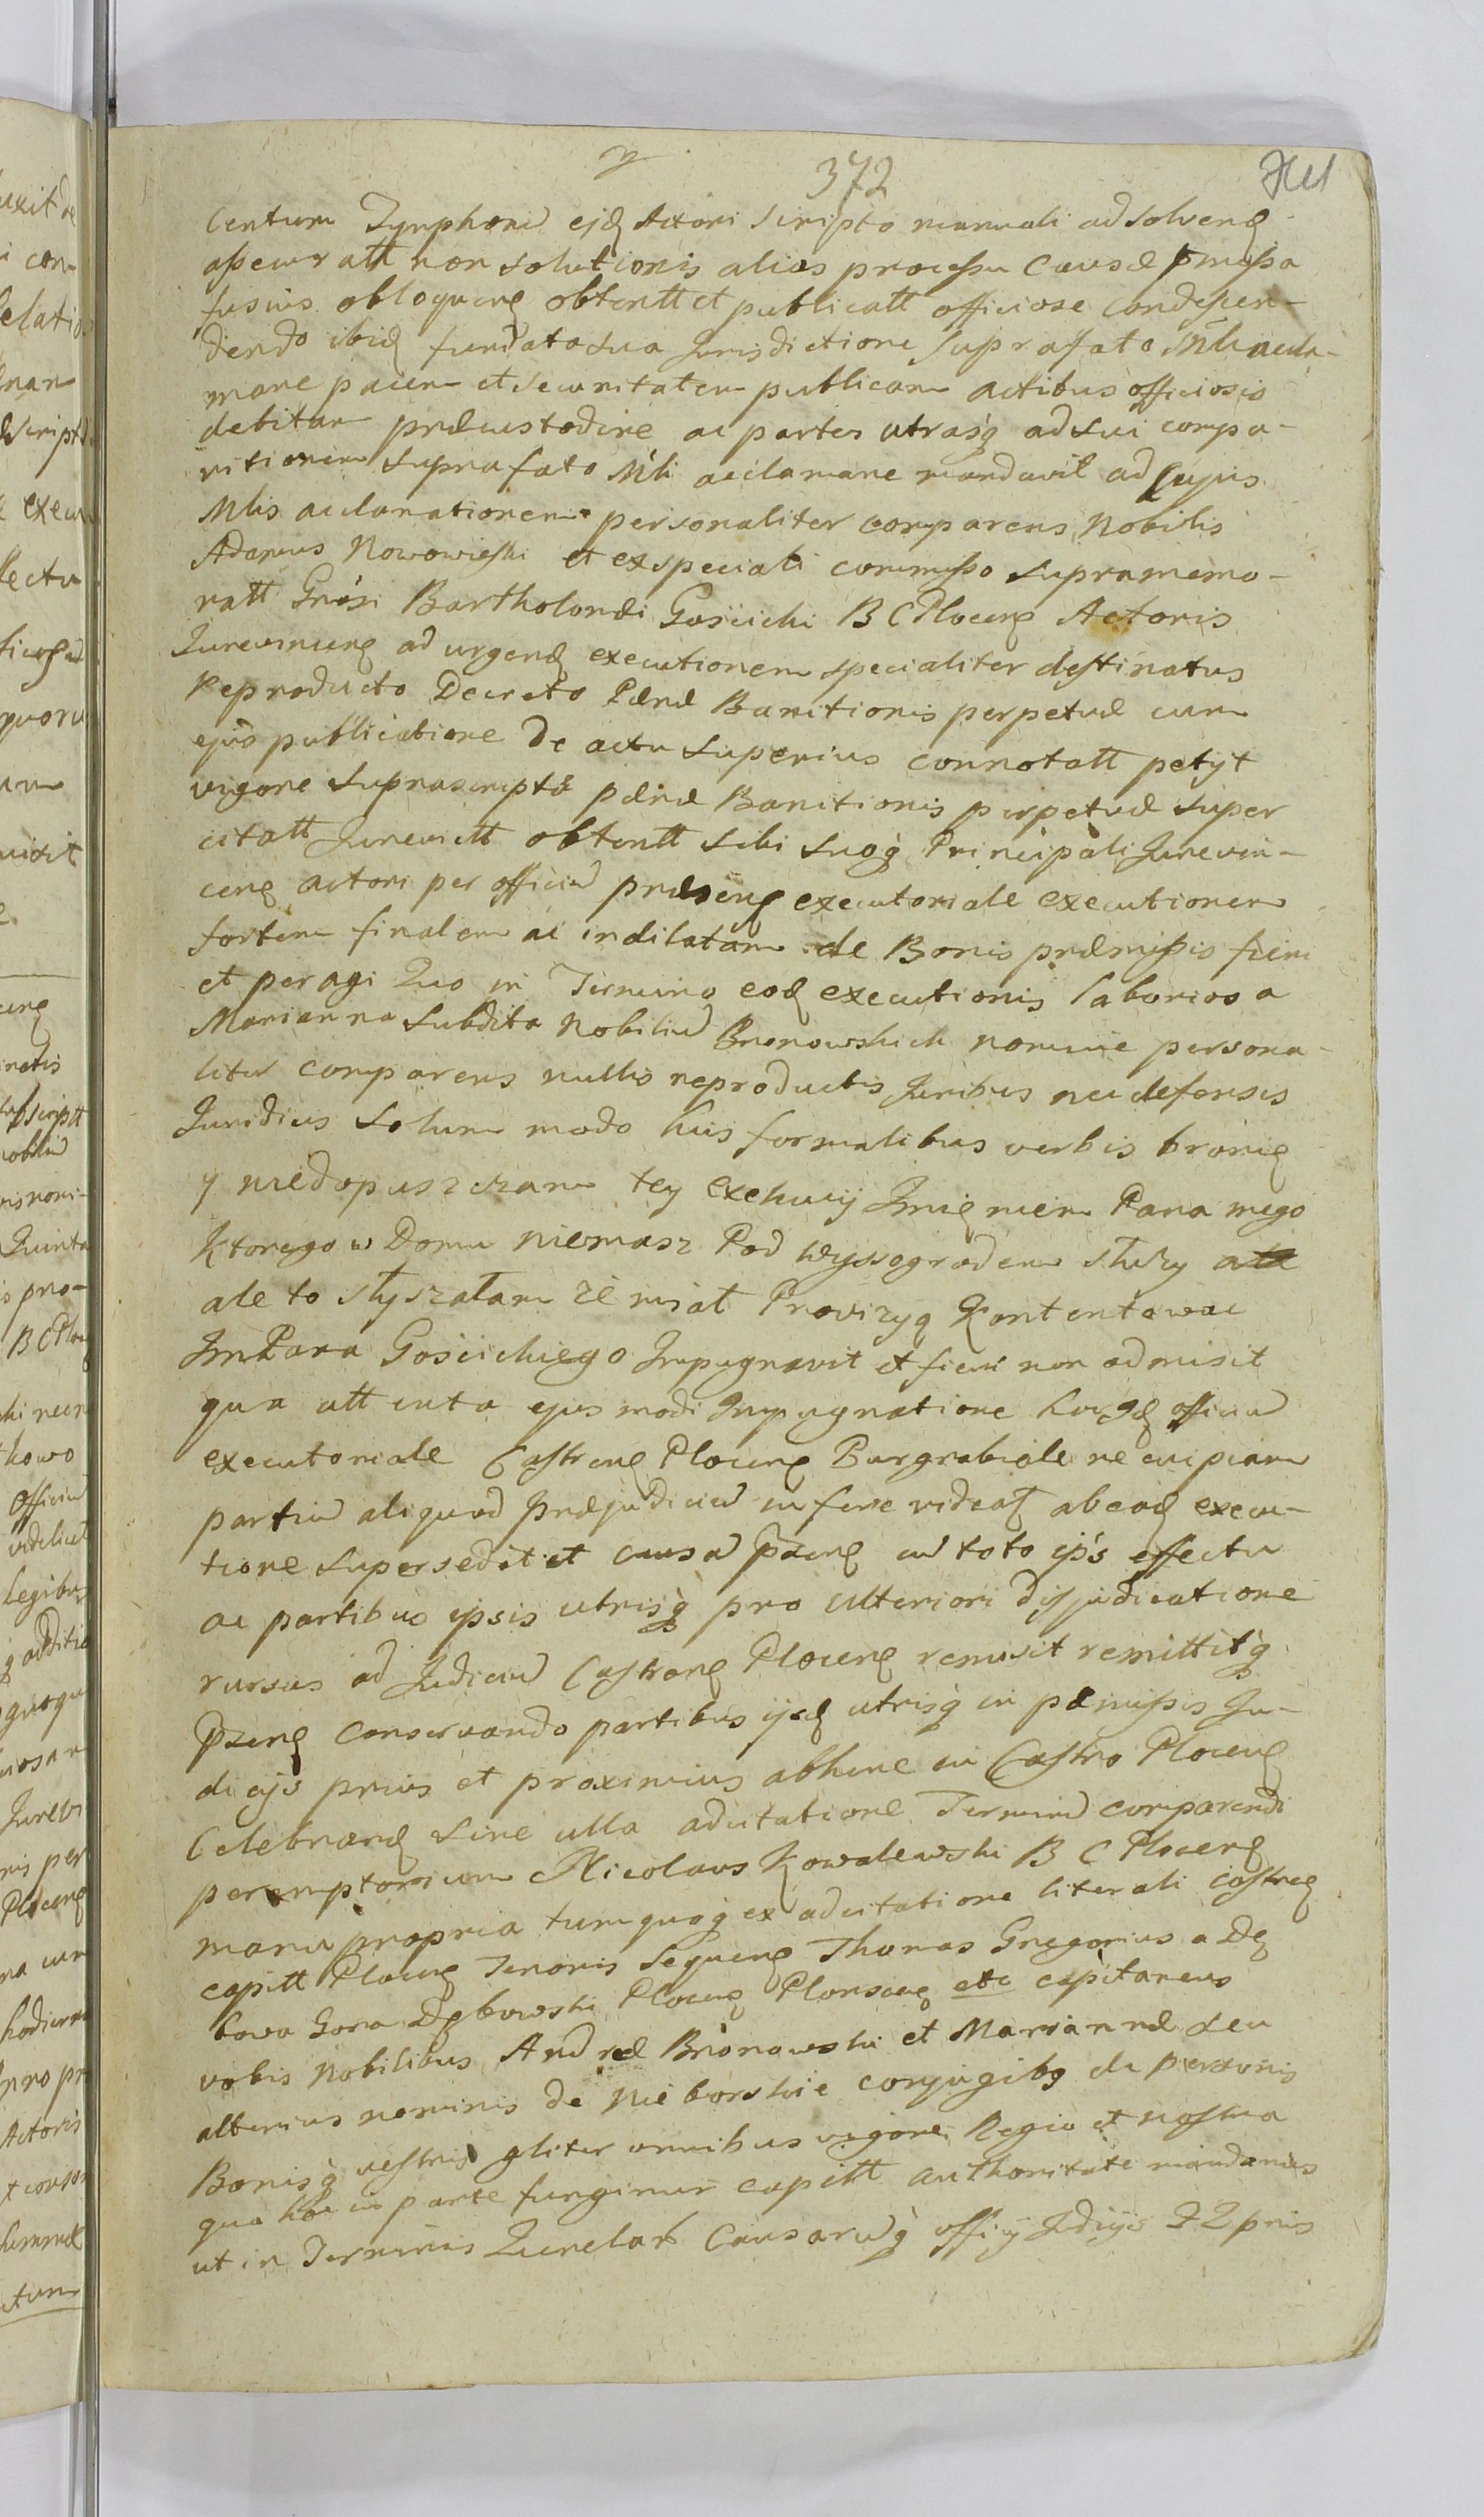 372
Centum Tynphonũ ejd Actori scripto manuali adsolvend
assecuratt non solutionis alias processu causæ pmissa
fusius obloquend obtentt et publicatt officiose condescen-
dendo ibid fundata sua Jurisdictione suprafato Mli accla-
mare pacem et securitatem publicam actibus officiosis
debitam præcustodire ac partes utrasq adsui compa-
ritionem suprafato Mli acclamare mandavit ad cujus
Mlis acclamationem personaliter comparens Nobilis
Adamus Nowowieski et exspeciali commisso supramemo-
ratt Gnosi Bartholomæi Gosciicki B C Plocens Actoris
Jurevincens ad urgend executionem specialiter destinatus
Reproducto Decreto Pænæ Banitionis perpetuæ cum
ejus publicatione de actu superius connotatt petijt
vigore suprascriptæ pænæ Banitionis perpetuæ super
citatt Jurevictt obtentt sibi suoq Principali Jurevin-
cens actori per officiũ præsens executoriale executionem
fortem finalem ac indilatam de Bonis præmissis fieri
et peragi Quo in Termino eod executionis laboriosa
Marianna subdita Nobiliũ Bronowskich nomine persona-
liter comparens nullis reproductis Juribus nec defensis
Juridicis solum modo his formalibus verbis bronię
y niedopuszczam tey exekucij Jmięniem Pana mego
Ktorego w Domu niemasz Pod Wyssogrodem służy
ale to słyszałam że miał Prowizyą Kontentowac
JmPana Gosciickiego Jmpugnavit et fieri non admisit
qua attenta ejusmodi Jmpugnatione officiũ
executoriale Castrens Plocens Burgrabiale ne cuipiam
partiũ aliquod præjudiciũ inferre videat ab ead execu-
tione supersedit et causã pzens cũ toto ejus effectu
ac partibus ipsis utrisq pro ulteriori disjudicatione
rursus ad Judiciũ Castrens Plocens remisit remittitq
pzens conservando partibus ijsd utrisq in pæmissis Ju-
dicijs prius et proximius abhinc in Castro Plocens
Celebrand sine ulla adcitatione Terminũ comparendi
peremptorium Nicolaus Kowalewski B C Plocens
manu propria tum quoq ex adcitatione literali castrens
capitt Plocens Tenoris sequens Thomas Gregorius a Dę
bowa Gora Dębowski Plocens Plonscens etc capitaneus
vobis Nobilibus Andreæ Bronowski et Mariannæ seu
alterius nominis de Nieborskie conjugibq de personis
Bonisq vestris gliter omnibus vigore Regia et nostra
qua hac in parte fungimur capitt authoritate mandamus
ut in Terminis Querelarũ Causarũq officij Judicijs pnis